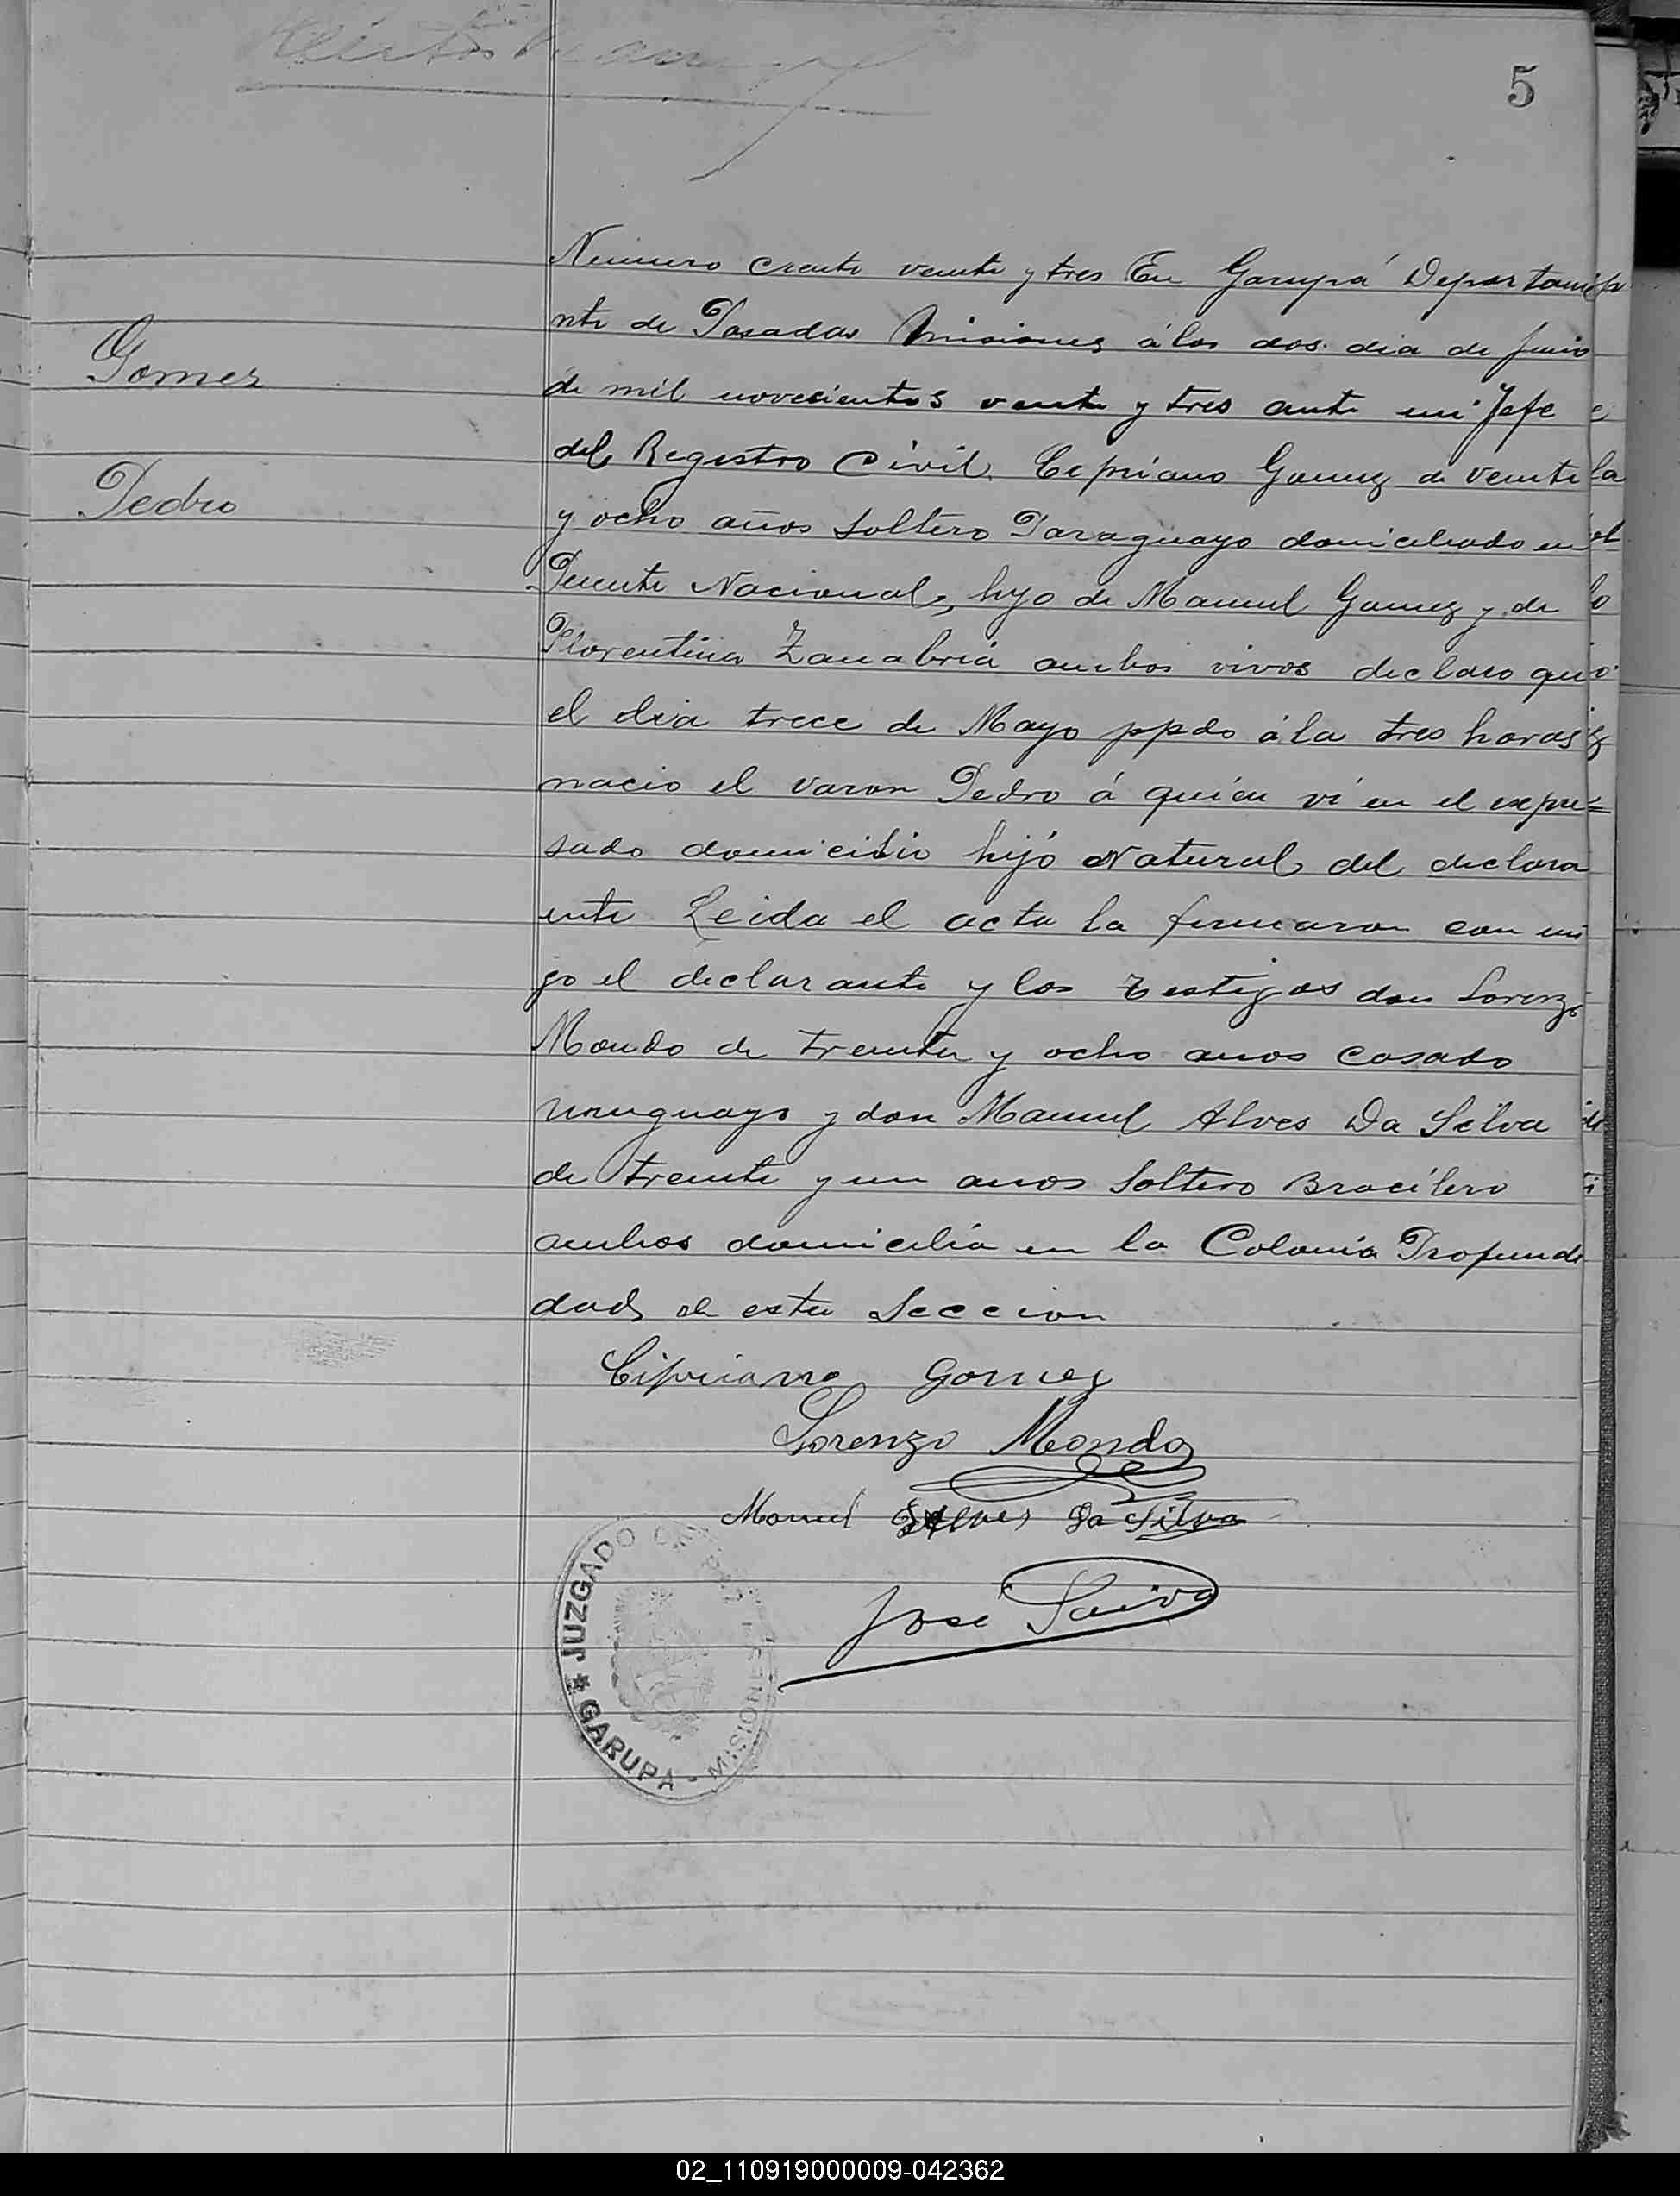 5
Gomez
Pedro
Número ciento veinte y tres En Garupá Departame
nto de Posadas Misiones á los dos dia de Junio
de mil novecientos veinte y tres ante mi Jefe
del Registro Civil. Cipriano Gomez de veinte
y ocho años soltero Paraguayo domiciliado en
Puente Nacional, hijo de Manuel Gomez y de
Florentina Zanabria ambos vivos declaro que
el dia trece de Mayo ppdo á la tres horas
nacio el varon Pedro á quien vi en el expre=
sado domicilio hijo Natural del declara
ente Leida el acta la firmaron con mi
go el declarante y los testigos don Lorenzo
Mondo de treinta y ocho anos casado
uruguayo y don Manuel Alves Da Silva
de treinta y un anos soltero Bracilero
ambos domicilia en la Colonia Profundi
dad de esta Seccion
Cipriano Gomez
Lorenzo Mondo
Manuel Alves Da Silva
José Paiva
JUZGADO DE PAZ
GARUPÁ - MISIONES
02_110919000009-042362